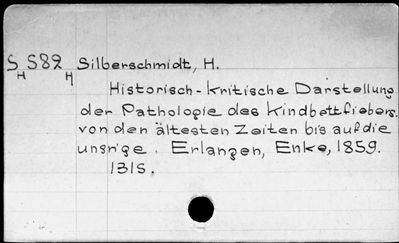 S S82 Silberschmidt, H.
H H
Historisch-kritische Darstellung
der Pathologie des Kindbettfiebers.
von den ältesten Zeiten bis auf die
unsrige. Erlangen, Enke, 1859.
131S.